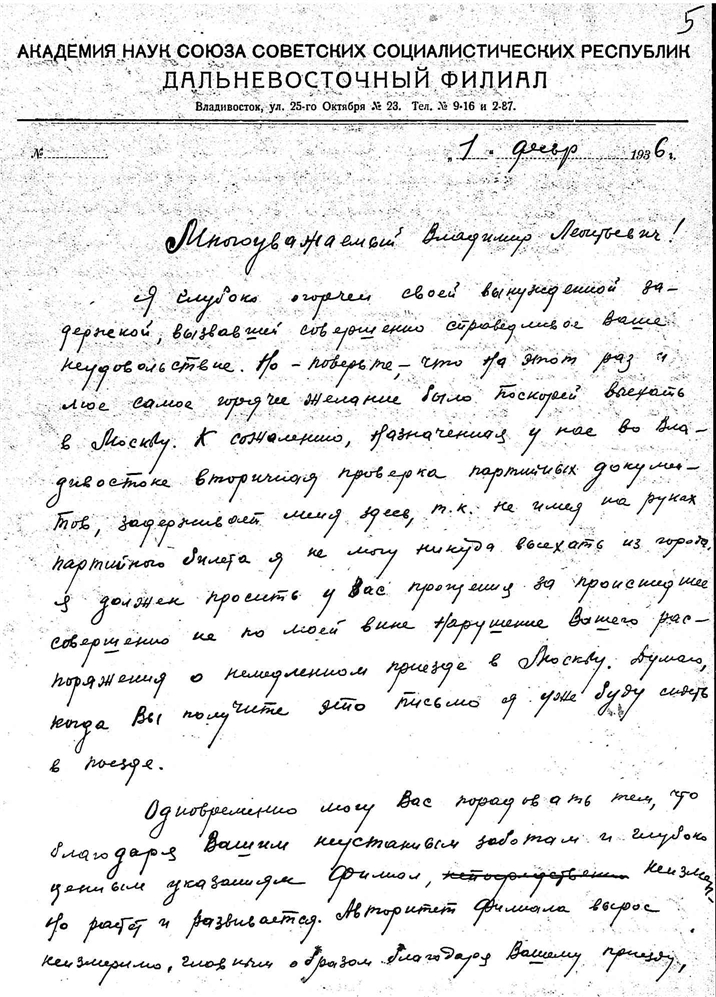 5
АКАДЕМИЯ НАУК СОЮЗА СОВЕТСКИХ СОЦИАЛИСТИЧЕСКИХ РЕСПУБЛИК
ДАЛЬНЕВОСТОЧНЫЙ ФИЛИАЛ
Владивосток, ул. 25-го Октября № 23. Тел. № 9-16 и 2-87.
№ „1“ февр 1936 г.
Многоуважаемый Владимир Леонтьевич!
Я глубоко огорчен своей вынужденной за-
держкой, вызвавшей совершенно справедливое Ваше
неудовольствие. Но – поверьте, – что на этот раз и
мое самое горячее желание было поскорей выехать
в Москву. К сожалению, назначенная у нас во Вла-
дивостоке вторичная проверка партийных докумен-
тов, задерживает меня здесь, т.к. не имея на руках
партийного билета я не могу никуда выехать из города.
Я должен просить у Вас прощения за происшедшее
совершенно не по моей вине нарушение Вашего рас-
поряжения о немедленном приезде в Москву. Думаю,
когда Вы получите это письмо я уже буду сидеть
в поезде.
Одновременно могу Вас порадовать тем, что
благодаря Вашим неустанным заботам и глубоко
ценным указаниям Филиал, непосредственно неизмен-
но растет и развивается. Авторитет Филиала вырос
неизмеримо, главным образом благодаря Вашему приезду,